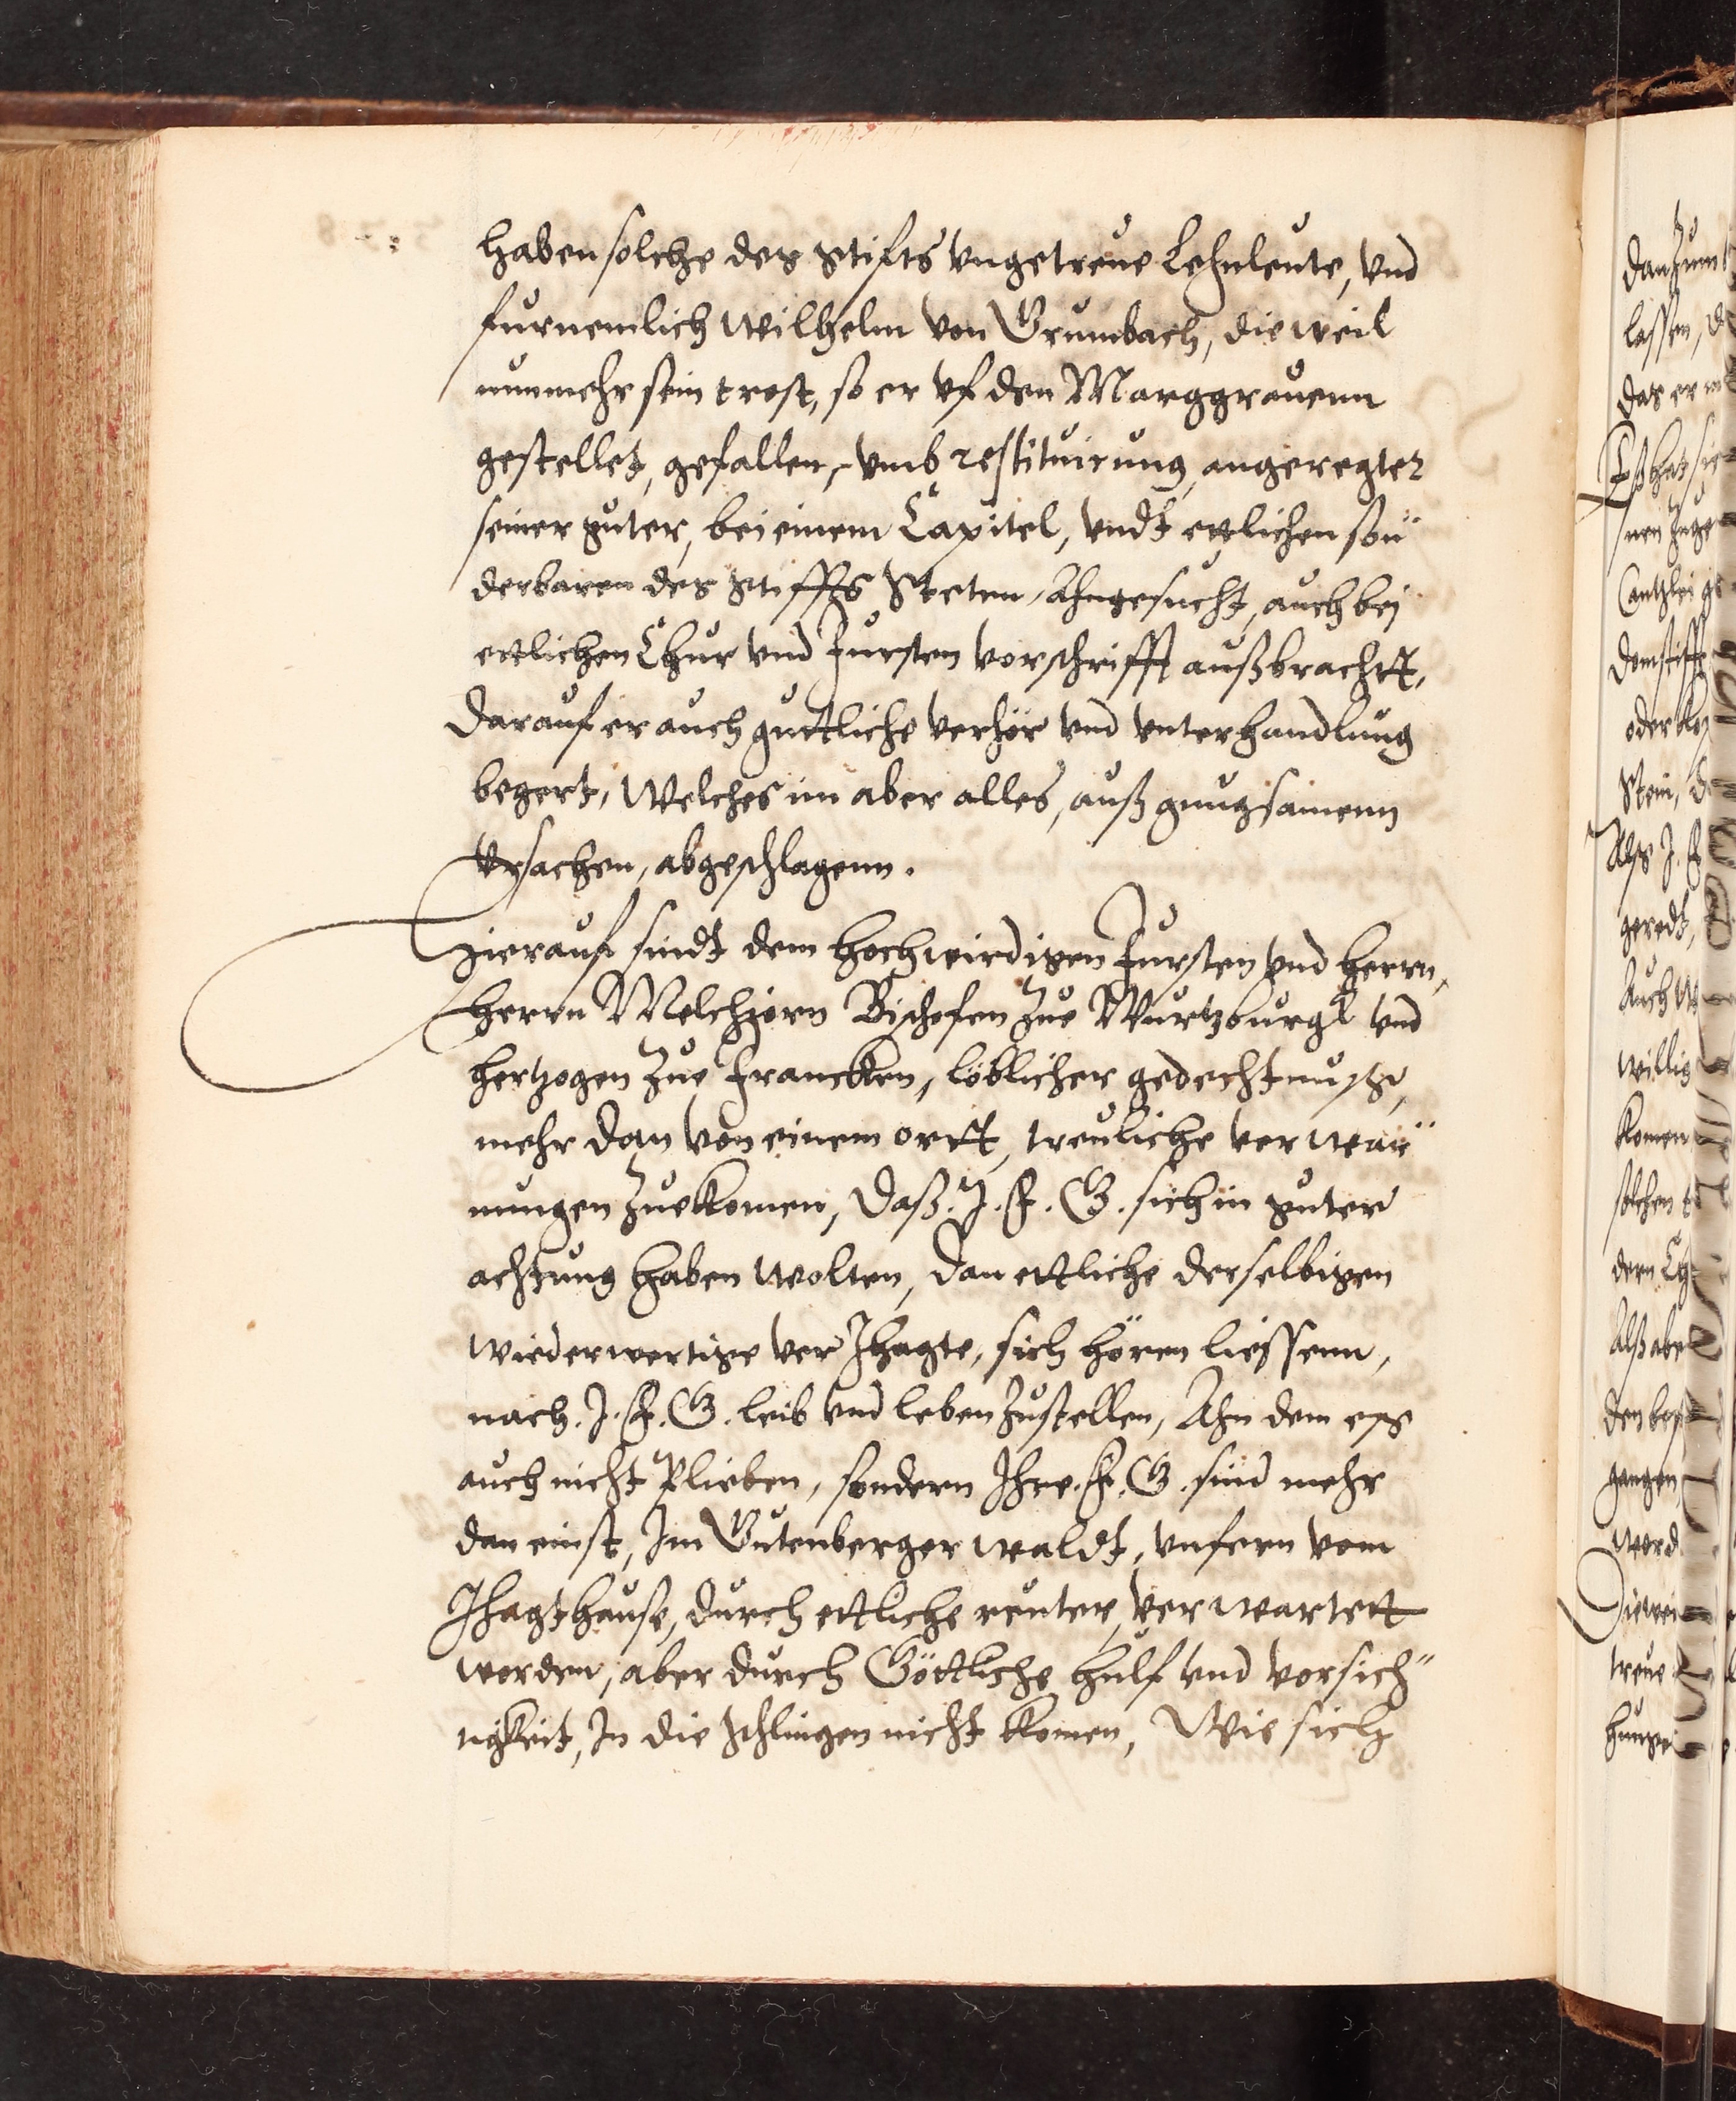 haben solche des Stifts vngetreue Lehnleute, vnd
furnemlich Wilhelm von Grumbach, die weil
nunmehr sein trost, so er vf den Marggrauenn
gestellet, gefallen, vmb restituirung angeregter
seiner guter, bei einem Capitel, vndt etlichen son"
derbaren des Stiffts Steten, Ahngesucht, auch bei
ettlichen Chur vnd Fursten vorschrifft außbrachtt,
Darauf er auch guttliche verhör vnd vnterhandlung
begert, Welches im aber alles, auß gnugsamenn
Vrsachen, abgeschlagenn.
Hierauf sindt dem hochwirdigen Fursten vnd herrn,
Herrn Melchiorn Bischofen Zue Wurtzburgk vnd
hertzogen Zue Francken, löblicher gedechtnuße,
mehr dan von einem ortt, treuliche verwar"
nungen Zuekomen, Daß. J. F. G. sich in guter
achtung haben wolten, Dan ettliche derselbigen
wiederwertige ver Jhagte, sich hören liessenn,
nach. J. F. G. leib vnd leben Zustellen, Ahn dem es
auch nicht Plieben, sondern Ihre. F. G. sind mehr
dan einst, Im Gutenberger waldt, vnfern vom
Jhagthause, durch ettliche reuter, verwartett
worden, aber durch Göttliche hulf vnd vorsich"
tigkeit, In die schlingen nicht komen, Wie sich